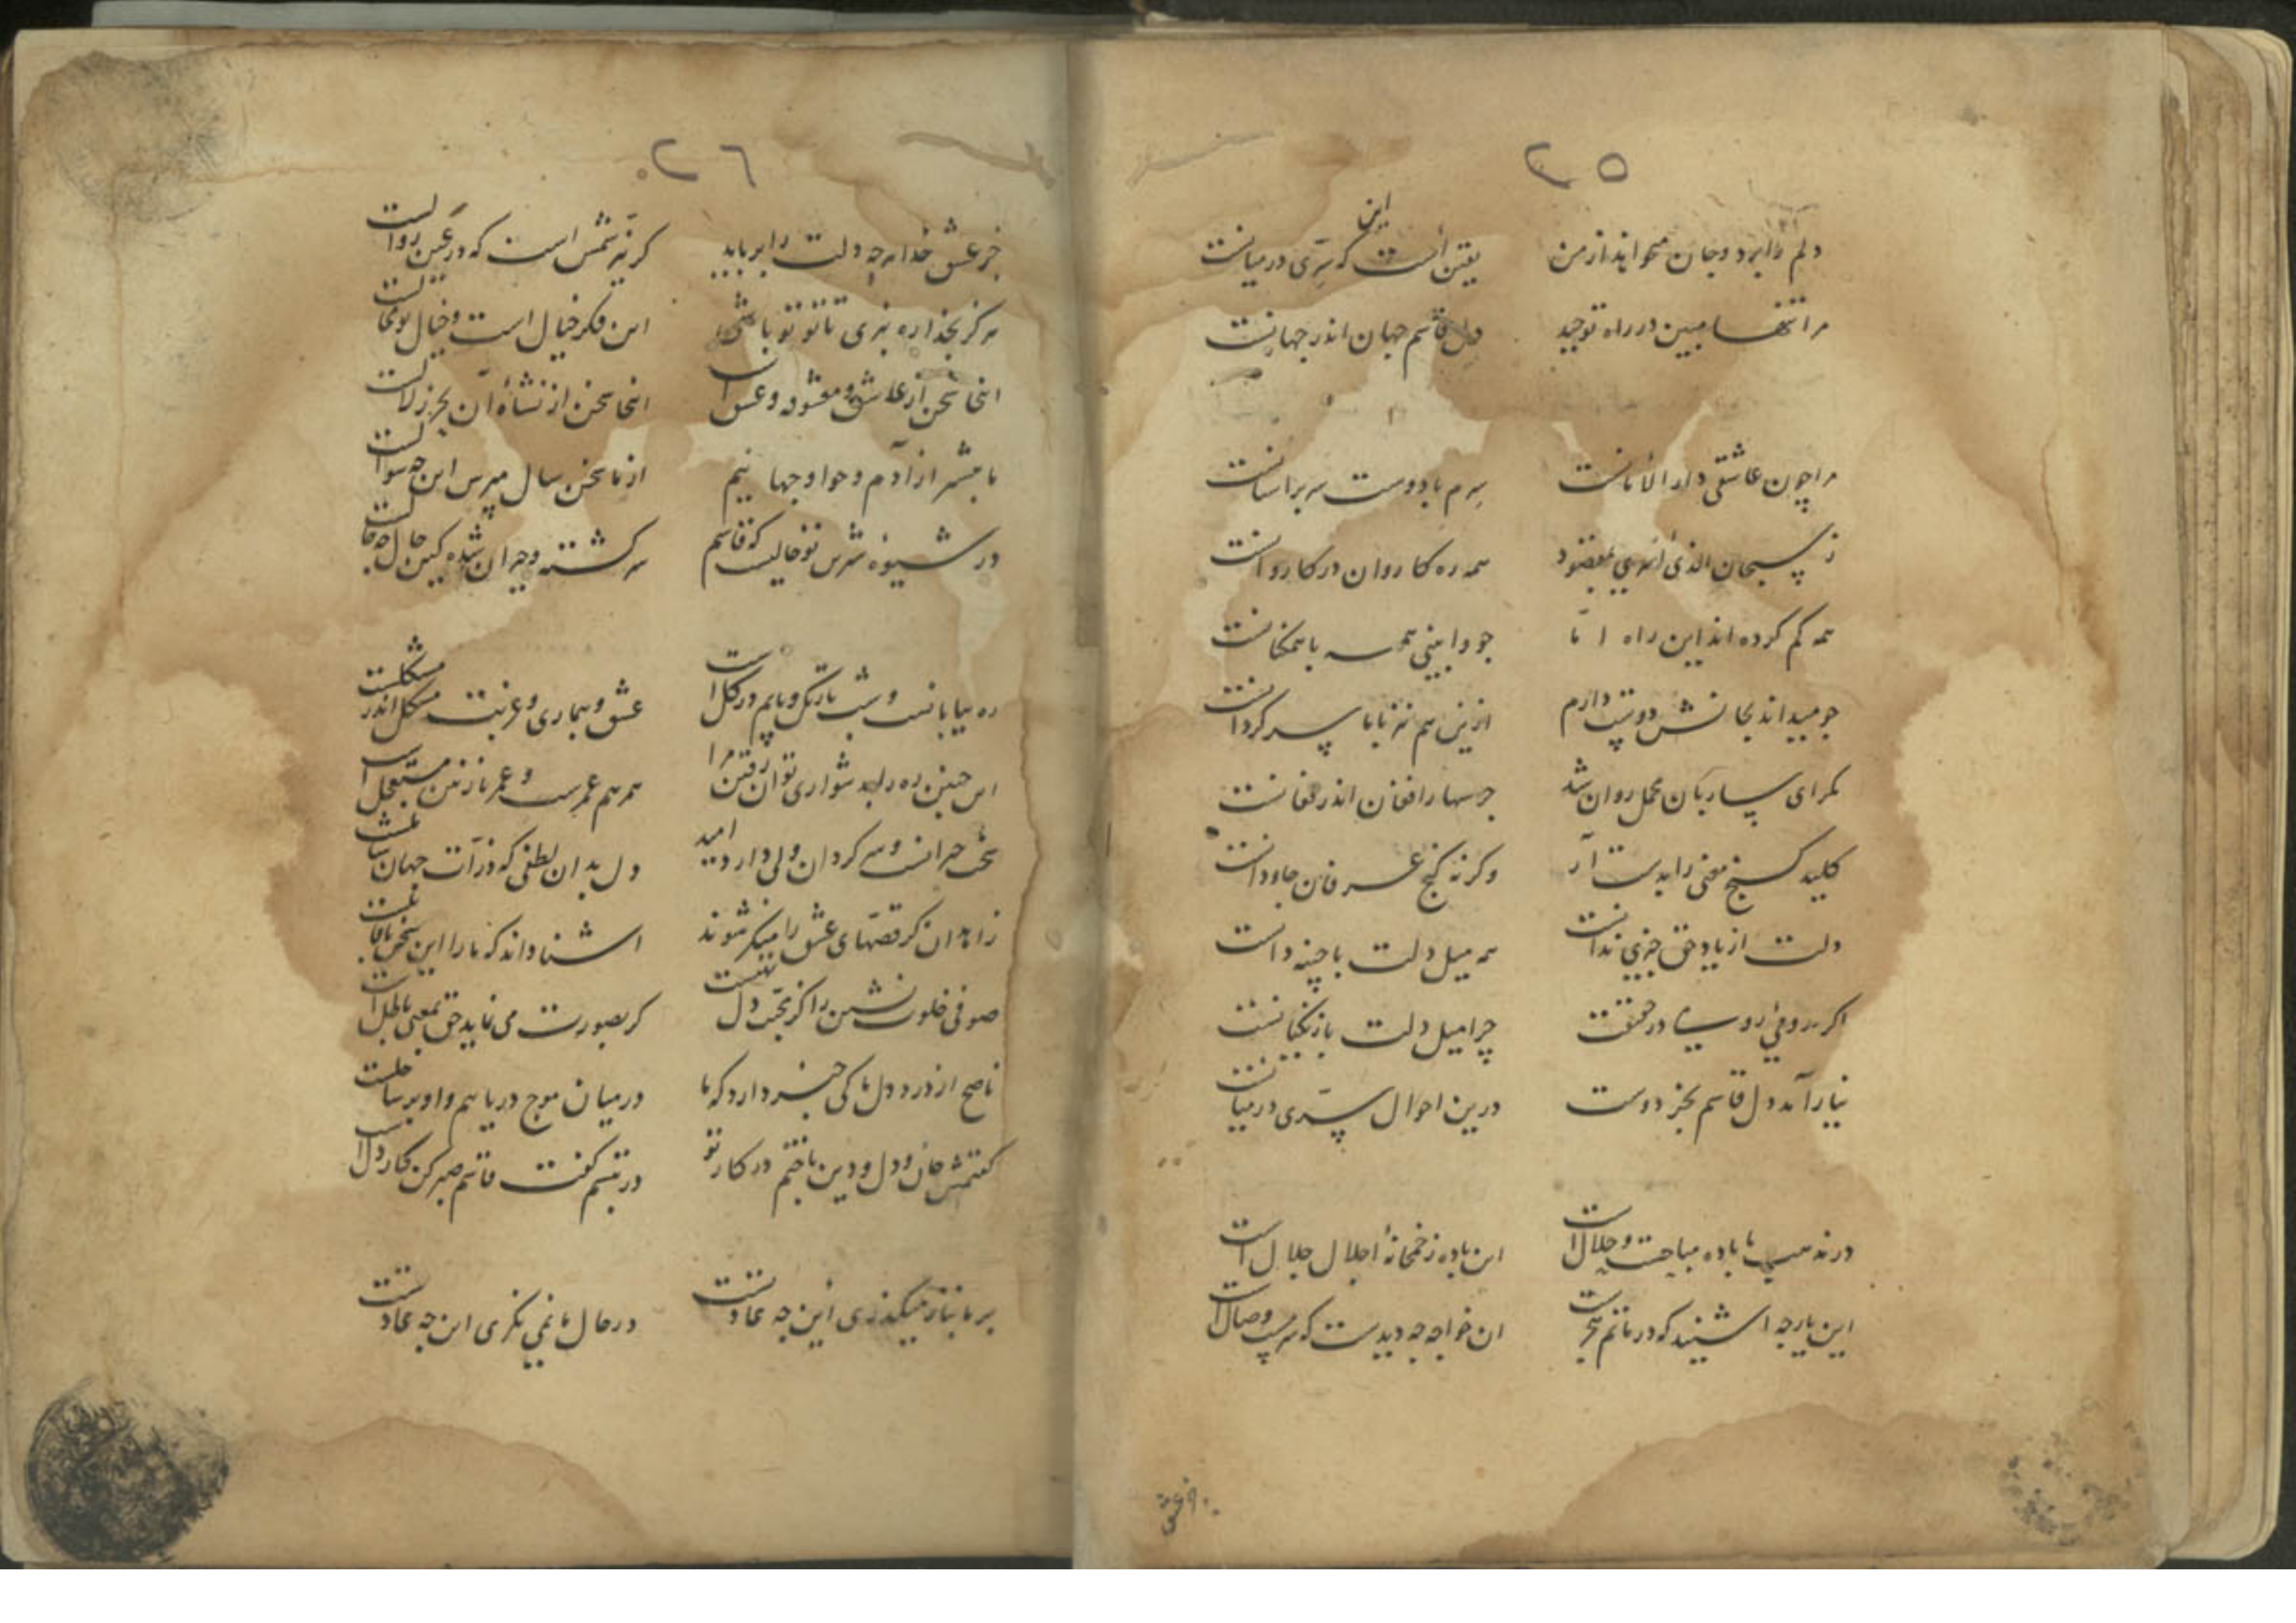 ٢٥
این
دلم را برد و جان میخواهد از من یقین است که سری در میانست
مرا تنها مبین در راه توحید دل قاسم جهان اندر جهانست
مرا چون عاشقی دار الامانست سرم با دوست سر بر آستانست
ز سبحان الذی اسری همه ره کاروان در کاروانست
همه گم کرده اند این راه اما چو وا بینی همه با همکنانست
چو میداند بجانش دوست دارم ازین هم نیز با ما سر گرانست
مگر ای ساربان محمل روان شد جرسها را فغان اندر فغانست
کلید گنج معنی را بدست آر وگرنه گنج عرفان جاودانست
دلت از یاد حق چیزی ندانست همه میل دلت با چنه دانست
اگر در حقیقت چرا میل دلت با زنگیانست
نیارامد دل قاسم بجز دوست درین احوال سری در میانست
در مذهب ما باده مباحست و حلال است این باده ز خمخانه اجلال جلال است
این یار چه شنید که در ماتم هجر است ان خواجه چه دیدست که مست وصال است
جز عشق
٢٦
جز عشق خدا هر چه دلت را برباید گر نیر شمس است که در عین زوالست
هرگز نگذارد تا تو تو باشی این فکر خیال است و خیال تو محالست
اینجا سخن از عاشق و معشوق و عشق است اینجا سخن از نشأه آن بحر زلالست
ما پیشتر از آدم و حوا و جهانیم از ما سخن سال مپرس این چه سوالست
در شیوه تو حالیست که قاسم سرگشته و حیران شده کین حال چه حالست
ره بیابانست و شب تاریک و پایم در گل است عشق و بیماری و غربت مشکل اندر مشکلست
این چنین ره را بدشواری توان رفتن مرا همرهم عمر است و عمر نازنین مستعجل است
سخت حیرانست و سرگردان ولی دارد امید دل بدان لطفی که ذرات جهان را شاملست
زاهدان گر قصهای عشق را منکر شوند آشنا داند که ما را این سخن با عاقلست
صوفی خلوت نشین را گر تجلی نیست گر بصورت می نماید حق بمعنی باطل است
ناصح از درد دل ما کی خبر دارد که ما در میان موج دریاییم و او بر ساحلست
گفتمش جان و دل و دین باختم در کار تو در تبسم گفت قاسم صبر کن کار دل است
بر ما بناز میگذری این چه عادتست در حال ما نمی نگری این چه عادتست